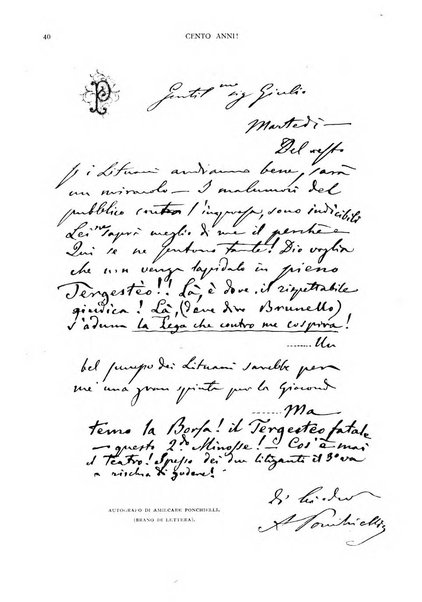 40
CENTO ANNI!
P
Gentil.mo sig Giulio
Martedì —
Del resto
se i Lituani andranno bene, sarà
un miracolo — I malumori del
pubblico contro l'impresa, sono indicibili
Lei saprà meglio di me il perchè —
Qui se ne sentono tante! Dio voglia
che non venga lapidato in pieno
Tergestèo!! Là, è dove il rispettabile
giudica! Là, (deve dire Brunello)
s'aduna la Lega che contro me cospira!
Un
bel successo dei Lituani sarebbe per
me una gran spinta per la Giocond
Ma
temo la Borsa! il Tergesteo fatale
— questo 2do Minosse! — Cos'è mai
il teatro! Spesso dei due litiganti il 3o va
a rischio di godere!
di Lei dev
A Ponchielli
AUTOGRAFO DI AMILCARE PONCHIELLI.
(BRANO DI LETTERA).